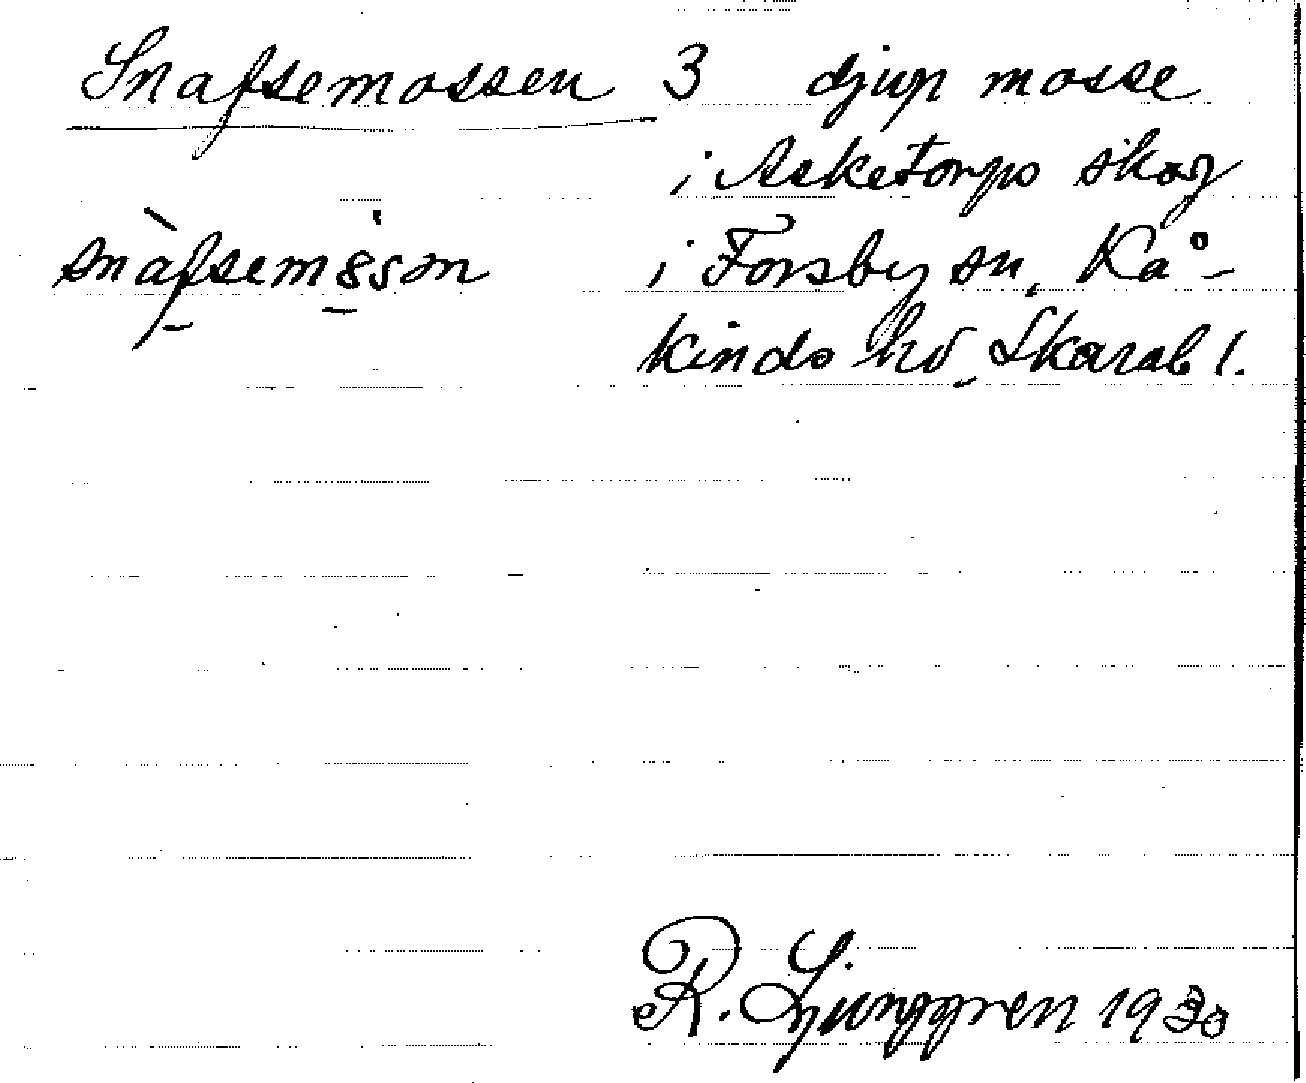 Snafsemossen 3 djup mosse
i Asketorps skog
snàfsem8sσn i Forsby sn, Kå-
kinds hd Skarab l.
R. Ljunggren 1930